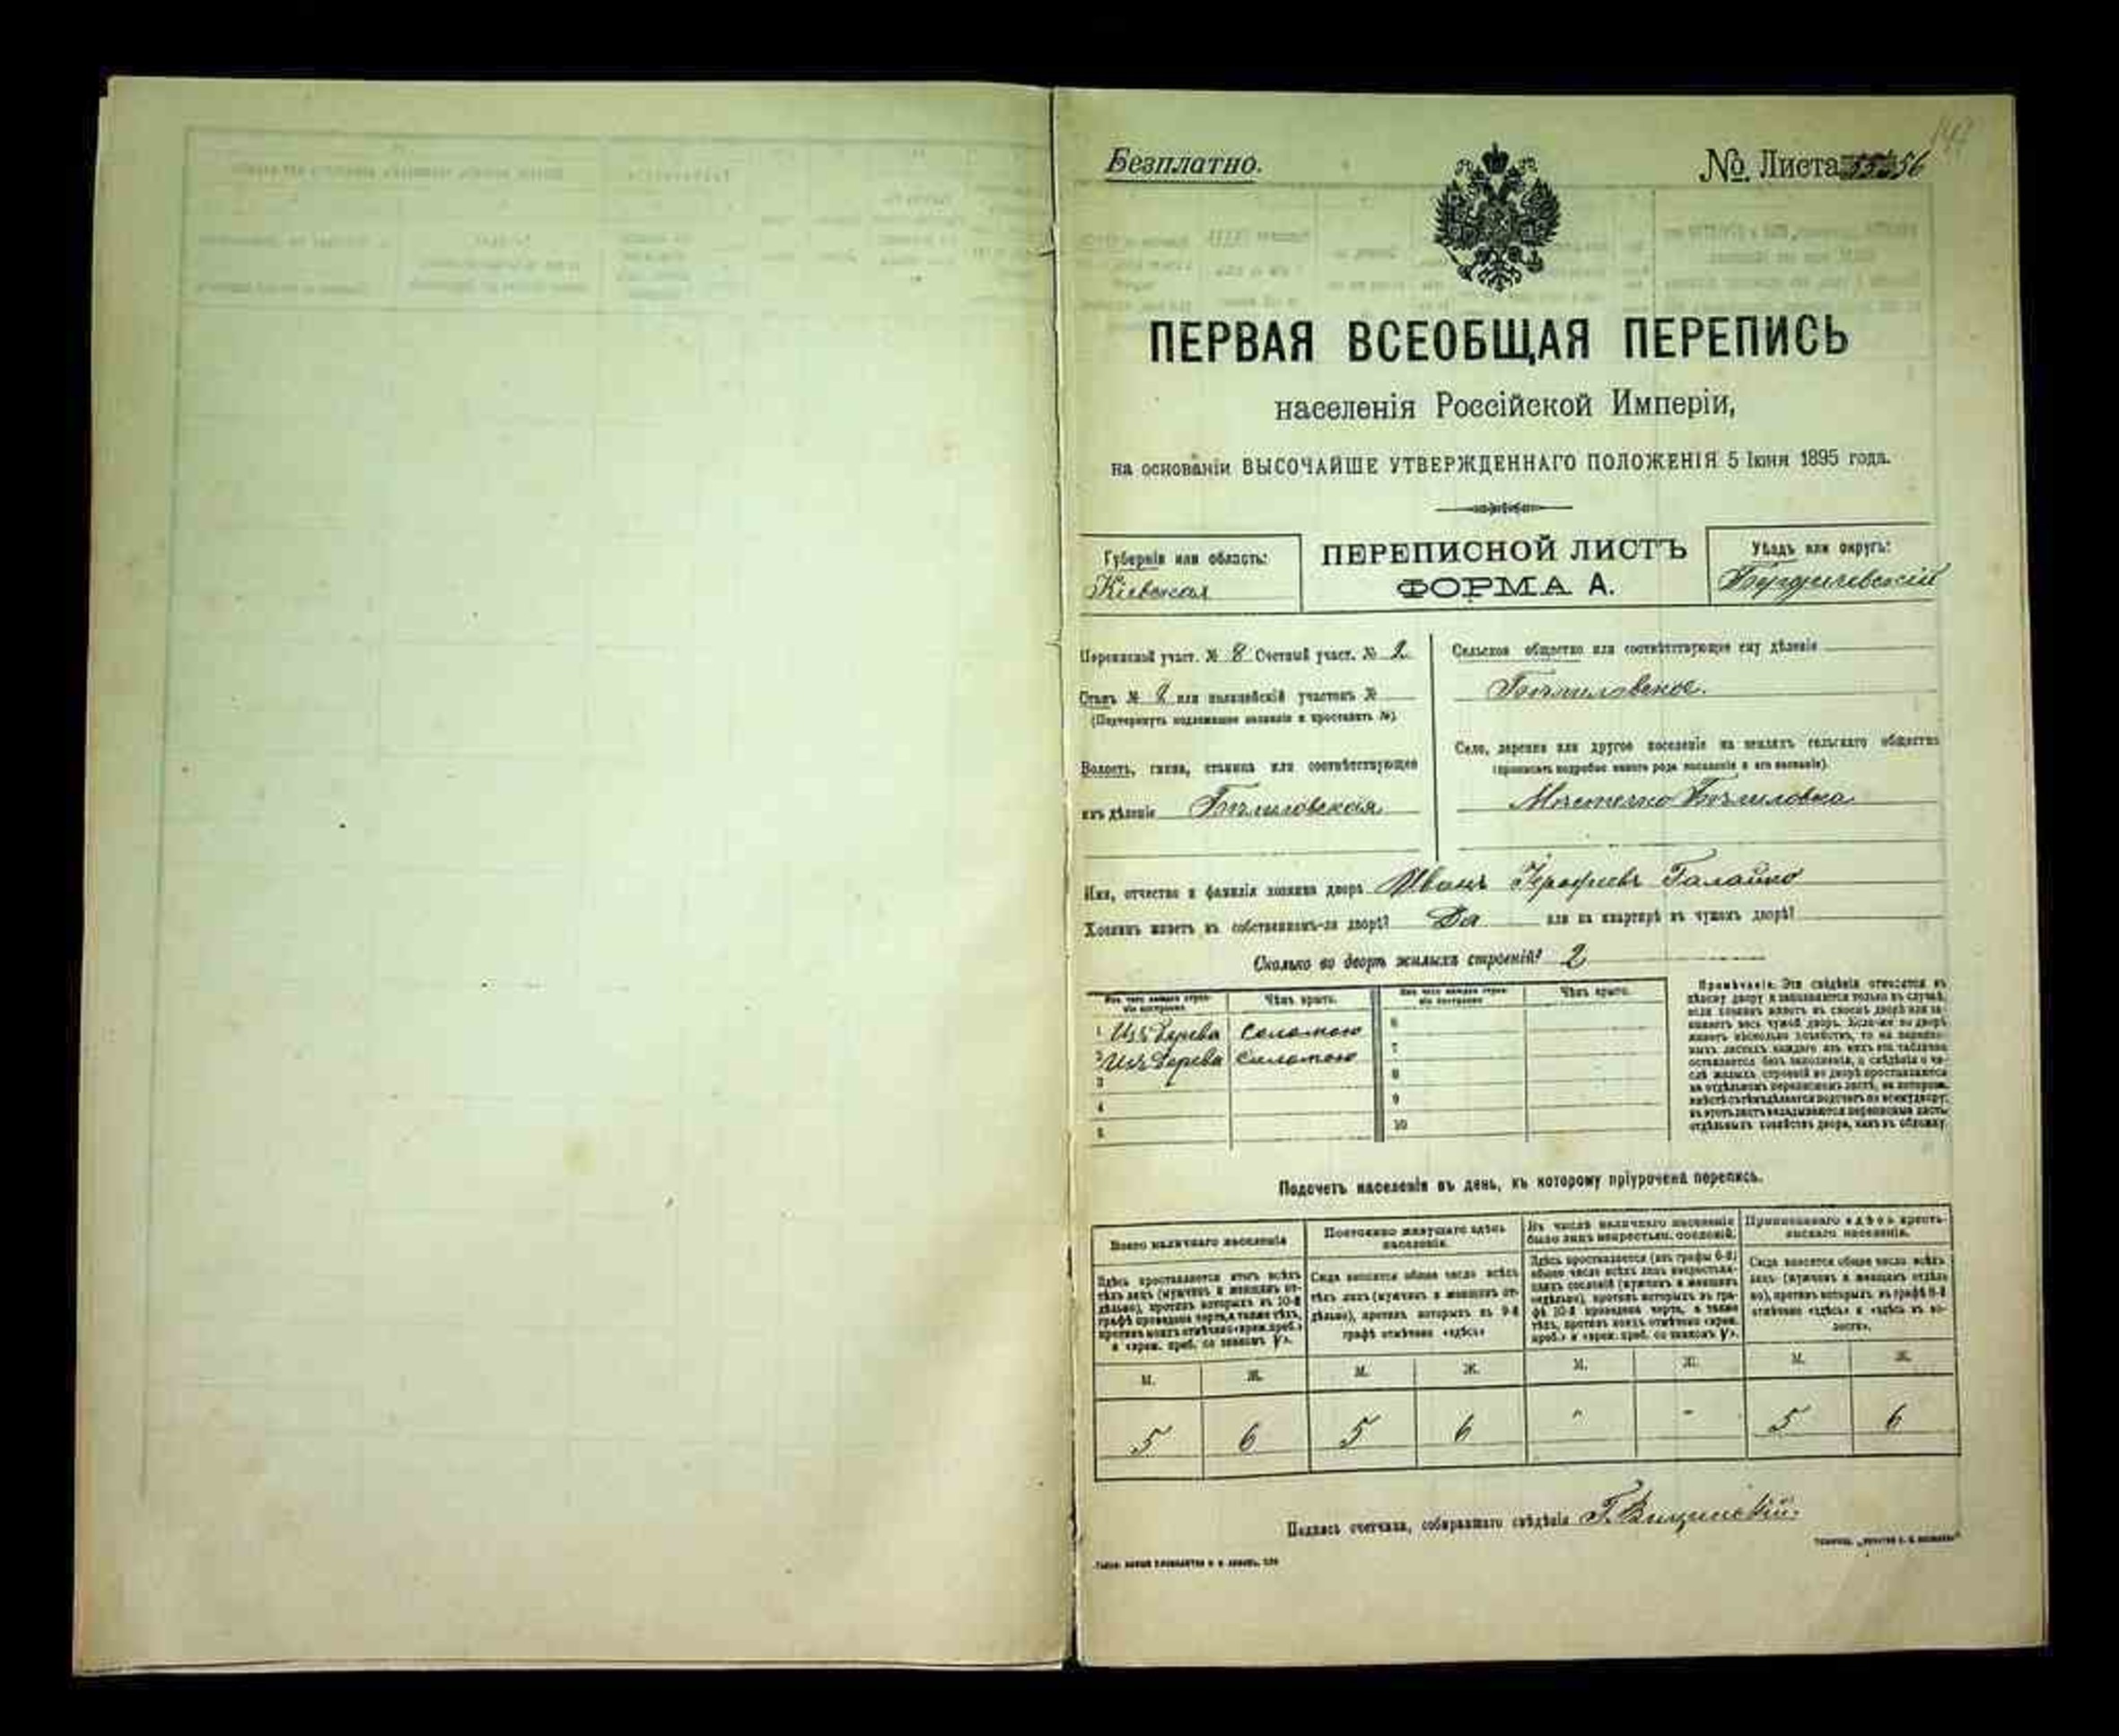 Безплатно.
№ Листа 56
147
ПЕРВАЯ ВСЕОБЩАЯ ПЕРЕПИСЬ
населенія Россійской Имперіи,
на основаніи ВЫСОЧАЙШЕ УТВЕРЖДЕННАГО ПОЛОЖЕНІЯ 5 Іюня 1895 года.
Губернія или область:
Кіевская
ПЕРЕПИСНОЙ ЛИСТЪ
ФОРМА А.
Уѣздъ или округъ:
Бердичевскій
Переписной участ. № 8 Счетный участ. № 2
Станъ № 2 или полицейскій участокъ №
(Подчеркнуть подлежащее названіе и проставить №)
Волость, гмина, станица или соотвѣтствующее
имъ дѣленіе Бѣлиловская
Сельское общество или соотвѣтствующее ему дѣленіе
Бѣлиловское.
Село, деревня или другое поселеніе на земляхъ сельскаго общества
(прописать подробно какого рода поселеніе и его названіе)
Мѣстечко Бѣлиловка
Имя, отчество и фамилія хозяина двора Иванъ Галайко
Хозяинъ живетъ въ собственномъ-ли дворѣ? Да или на квартирѣ въ чужомъ дворѣ?
Сколько во дворѣ жилыхъ строеній? 2
Изъ чего каждое строеніе построено.
Чѣмъ крыто.
Изъ чего каждое строеніе построено.
Чѣмъ крыто.
1 Изъ дерева соломою 6
2 Изъ дерева соломою 7
3 8
4 9
5 10
Примѣчаніе. Эти свѣдѣнія относятся къ
цѣлому двору и заполняются только въ случаѣ,
если хозяинъ живетъ въ своемъ дворѣ или занимаетъ весь чужой дворъ. Если-же во дворѣ
живетъ нѣсколько хозяйствъ, то на переписныхъ листахъ каждаго изъ нихъ эта табличка
остается безъ заполненія, а свѣдѣнія о числѣ жилыхъ строеній во дворѣ проставляются
на отдѣльномъ переписномъ листѣ, на которомъ
вмѣстѣ съ тѣмъ дѣлается подсчетъ по всему двору;
въ этотъ листъ вкладываются переписные листы
отдѣльныхъ хозяйствъ двора, какъ въ обложку.
Подсчетъ населенія въ день, къ которому пріурочена перепись.
Всего наличнаго населенія
Здѣсь проставляется итогъ всѣхъ
тѣхъ лицъ (мужчинъ и женщинъ отдѣльно), противъ которыхъ въ 10-й
графѣ проведена черта, а также тѣхъ,
противъ коихъ отмѣчено «врем. преб.»
и «врем. преб. со знакомъ V».
Постоянно живущаго здѣсь
населенія.
Сюда вносится общее число всѣхъ
тѣхъ лицъ (мужчинъ и женщинъ отдѣльно), противъ которыхъ въ 9-й
графѣ отмѣчено «здѣсь»
Въ числѣ наличнаго населенія
было лицъ некрестьян. сословій.
Здѣсь проставляется (изъ графы 6-й)
общее число всѣхъ лицъ некрестьянскихъ сословій (мужчинъ и женщинъ
отдѣльно), противъ которыхъ въ графѣ 10-й проведена черта, а также
тѣхъ, противъ коихъ отмѣчено «врем.
преб.» и «врем. преб. со знакомъ V».
Приписаннаго здѣсь крестьянскаго населенія.
Сюда вносится общее число всѣхъ
лицъ (мужчинъ и женщинъ отдѣльно), противъ которыхъ въ графѣ 8-й
отмѣчено «здѣсь» и «здѣсь въ волости».
М. Ж. М. Ж. М. Ж. М. Ж.
5 6 5 6 " - 5 6
Подпись счетчика, собиравшаго свѣдѣнія